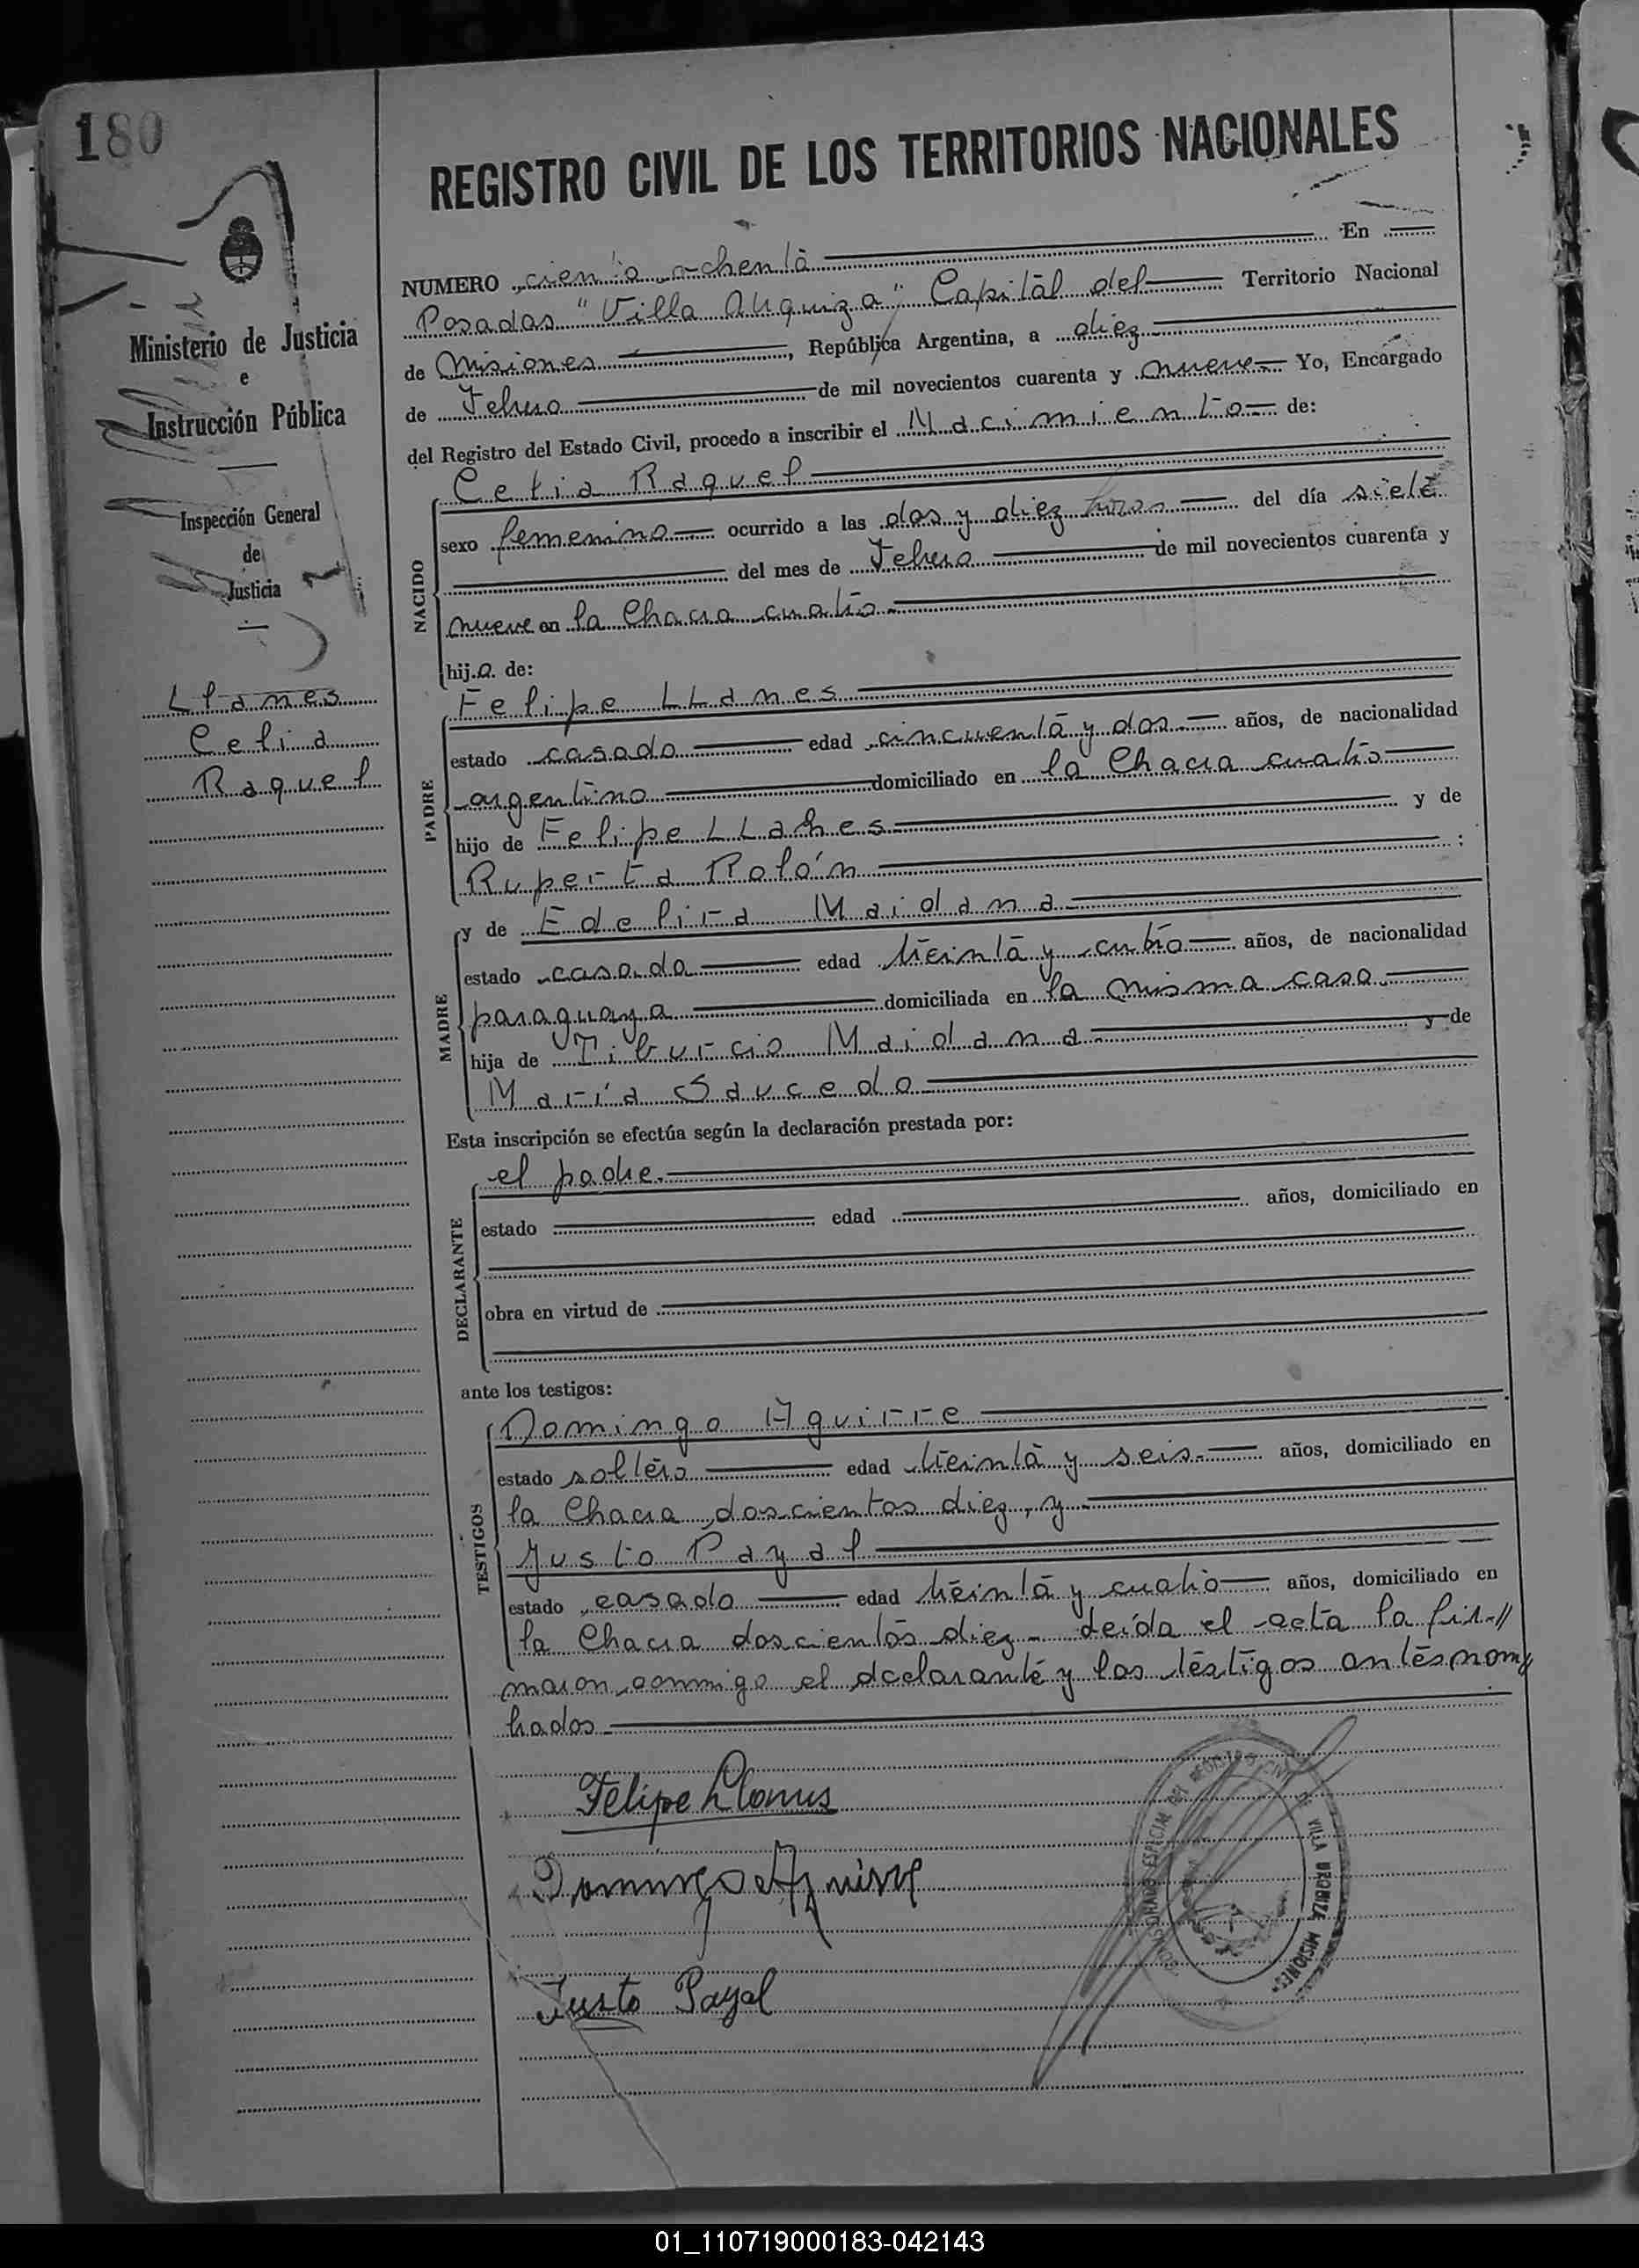 180
REGISTRO CIVIL DE LOS TERRITORIOS NACIONALES
Ministerio de Justicia
e
Instrucción Pública
Inspección General
de
Justicia
Llanes
Celia
Raquel
NUMERO ciento ochenta En
Posadas "Villa Urquiza" Capital del Territorio Nacional
de Misiones, República Argentina, a diez
de Febrero de mil novecientos cuarenta y nueve Yo, Encargado
del Registro del Estado Civil, procedo a inscribir el Nacimiento de:
NACIDO
Celia Raquel
sexo femenino ocurrido a las dos y diez horas del día siete
del mes de Febrero de mil novecientos cuarenta y
nueve en la Chacra cuatro
hija de:
PADRE
Felipe LLanes
estado casado edad cincuenta y dos años, de nacionalidad
argentino domiciliado en la Chacra cuatro
hijo de Felipe LLanes y de
Ruperta Rolón ;
MADRE
y de Edelira Maidana
estado casada edad treinta y cuatro años, de nacionalidad
paraguaya domiciliada en la misma casa
hija de Tiburcio Maidana y de
María Saucedo
Esta inscripción se efectúa según la declaración prestada por:
DECLARANTE
el padre.
estado edad años, domiciliado en
obra en virtud de
ante los testigos:
TESTIGOS
Domingo Aguirre
estado soltero edad treinta y seis años, domiciliado en
la Chacra doscientos diez, y
Justo Payal
estado casado edad treinta y cuatro años, domiciliado en
la Chacra doscientos diez. Leída el acta la fir-//
maron conmigo el declarante y los testigos antes nom//
brados
Felipe Llanes
Domingo Aguirre
Justo Payal
DEL REGISTRO CIVIL DE VILLA URQUIZA MISIONES
01_110719000183-042143